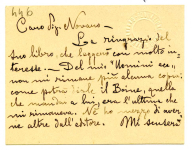 446
Caro Sig. Novaro -
La ringrazio del
suo libro, che leggerò con molto in-
teresse. - Del mio "Uomini ecc."
non mi rimane più alcuna copia:
come potrà dirle il Boine, quella
che mandai a lui, era l'ultima che
mi rimaneva. Nè ho mezzo di aver-
ne altre dall'editore. Mi scuserà